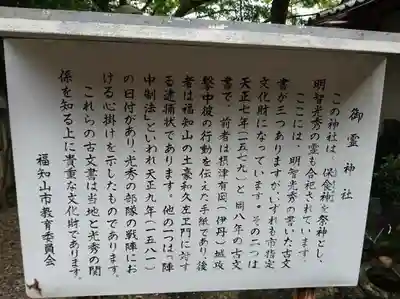 御霊神社
この神社は、保食神を祭神とし、
明智光秀の霊も合祀されています。
ここには、明智光秀の書いた古文
書が三つありますがいずれも市指定
文化財になっています。その二つは
天正七年(一五七九)と同八年の古文
書で、前者は摂津有岡(伊丹)城攻
撃中彼の行動を伝えた手紙であり、後
者は福知山の土豪和久左ヱ門に対す
る逮捕状であります。他の一つは「陣
中制法」といわれ天正九年(一五八一)
の日付があり、光秀の部隊の戦陣にお
ける心掛けを示したものであります。
これらの古文書は当地と光秀の関
係を知る上に貴重な文化財であります。
福知山市教育委員会